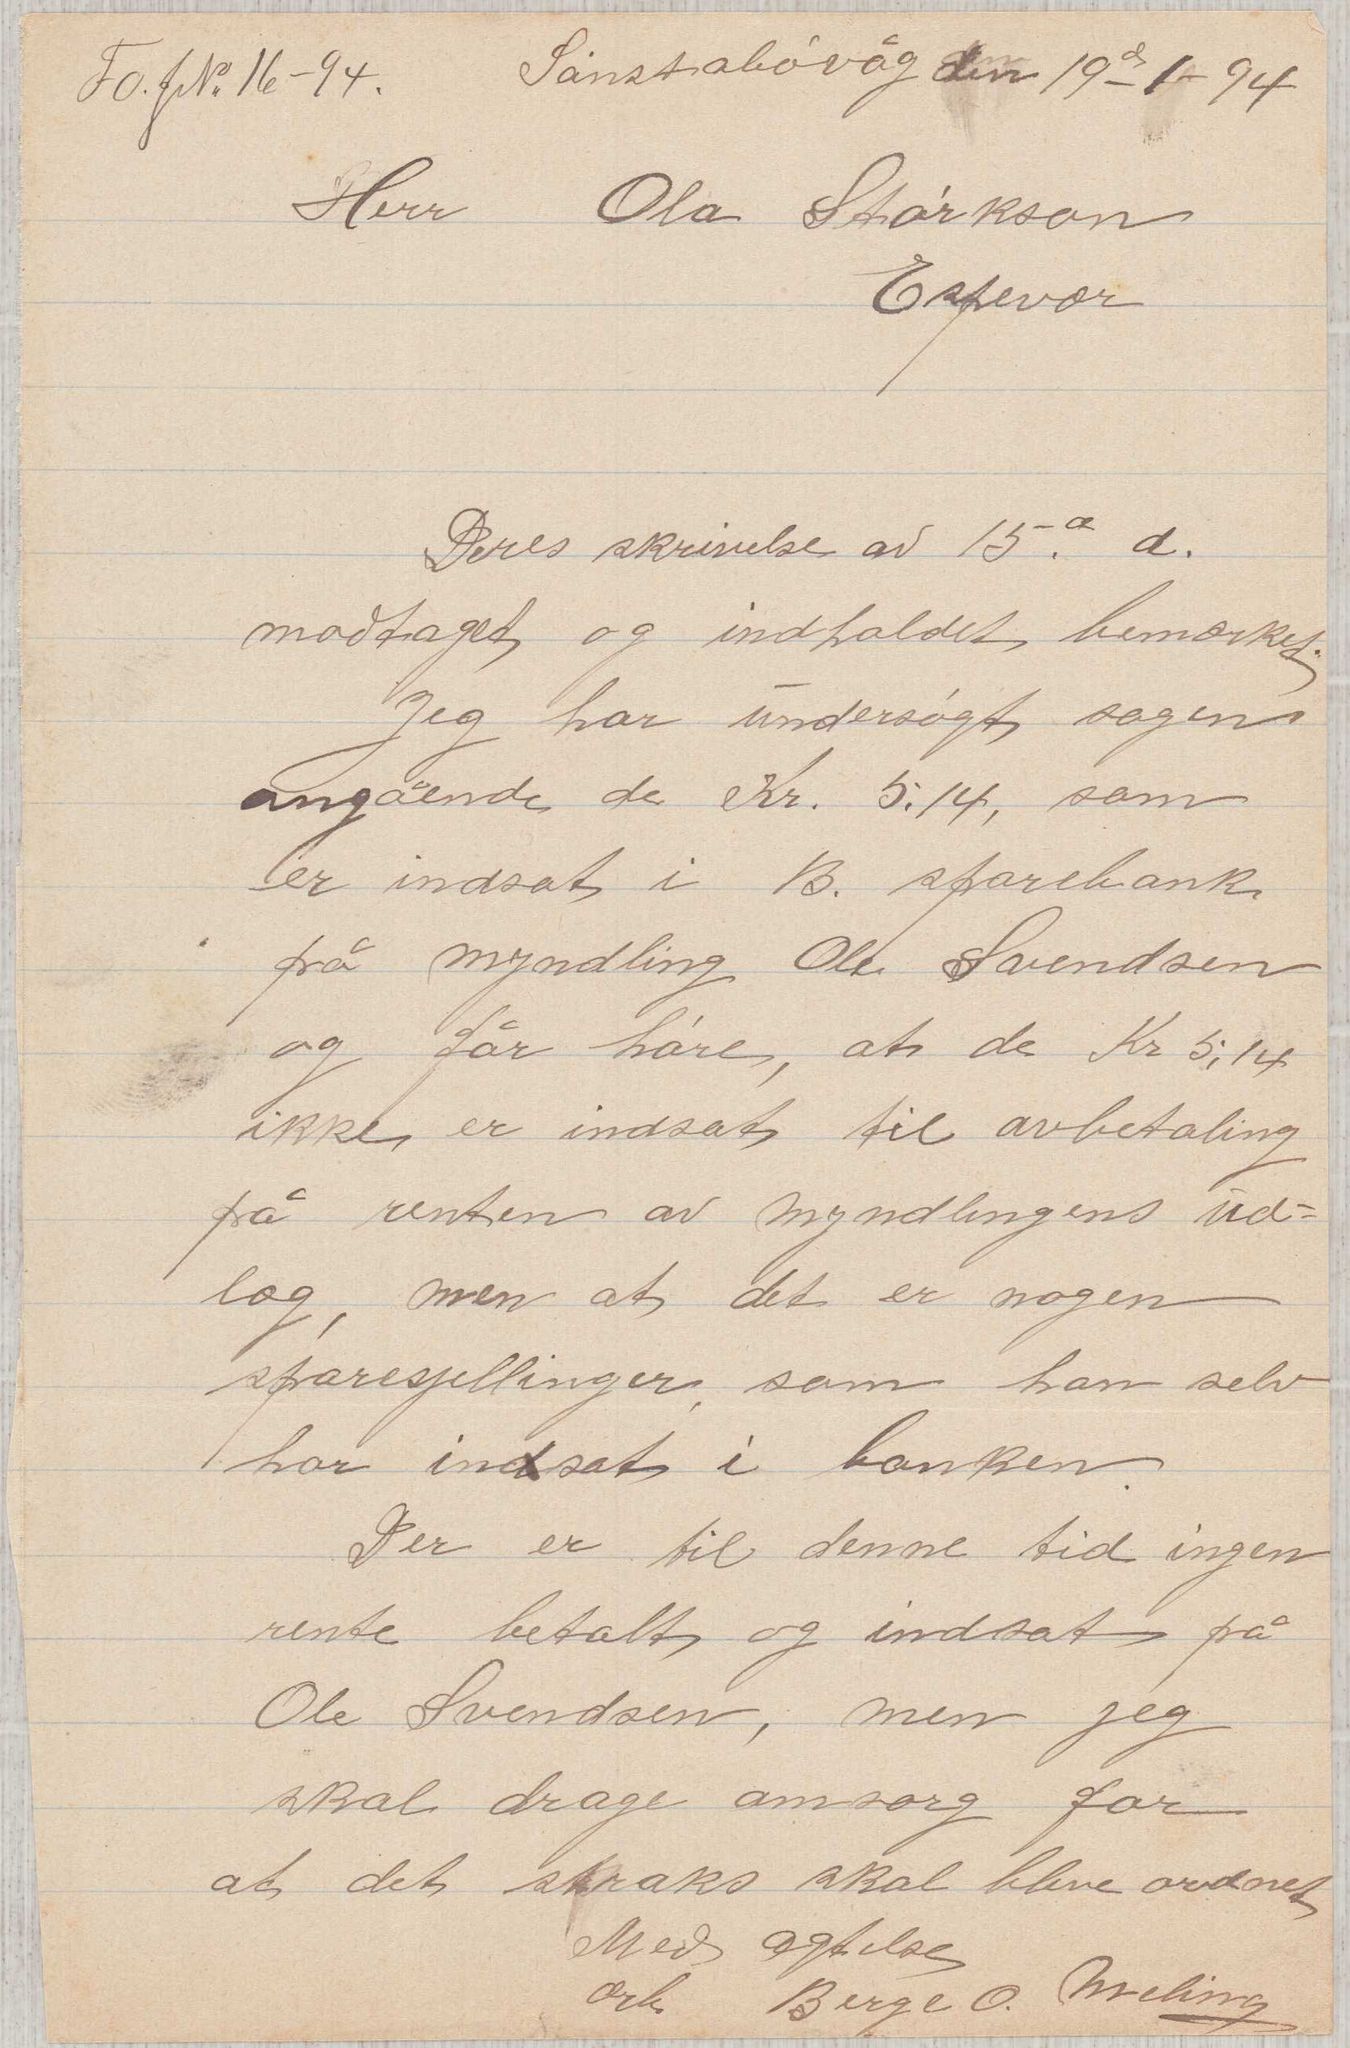 Fo. f № 16-94. Sánstabóvåg den 19de-1-94
Herr Ola Størkson
Espevær
Deres skrivelse av 15.de d.
modtaget og indholdet bemærket.
Jeg har undersógt sagen
angående de Kr. 5.14, som
er indsat i B. sparebank
på myndling Ole Svendsen
og får hóre, at de Kr 5,14
ikke er indsat til avbetaling
på renten av myndlingens ud=
læg, men at det er nogen
sparesjellinger, som han selv
har indsat i banken.
Der er til denne tid ingen
rente betalt og indsat på
Ole Svendsen, men jeg
skal drage omsorg for
at det straks skal blive ordnet
Med agtelse
ærb. Berge O. Meling